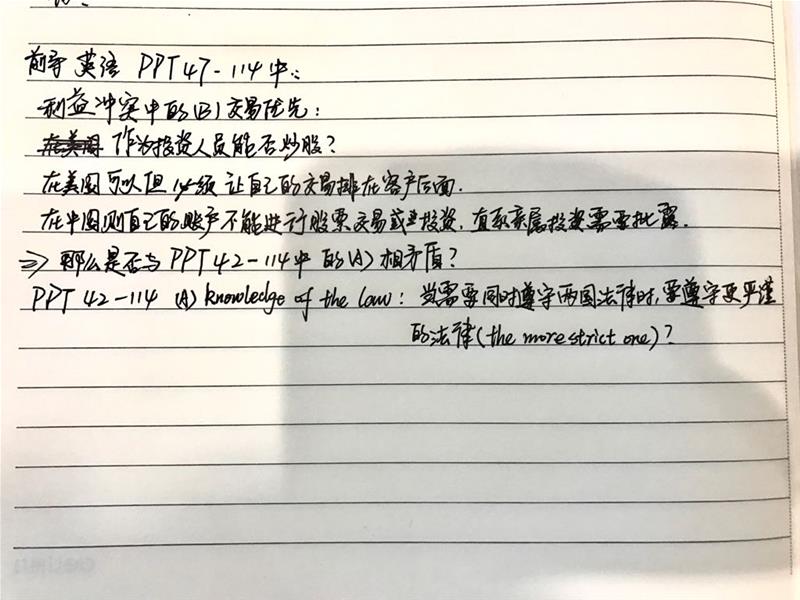 前导英语 PPT 47-114中:
利益冲突中的(B)交易优先:
作为投资人员能否炒股?
在美国可以但必须让自己的交易排在客户后面.
在中国则自己的账户不能进行股票交易或投资,直系亲属投资需要批露.
=> 那么是否与PPT42-114中的(A)相矛盾?
PPT 42-114 (A) knowledge of the law: 当需要同时遵守两国法律时,要遵守更严谨
的法律(the more strict one)?